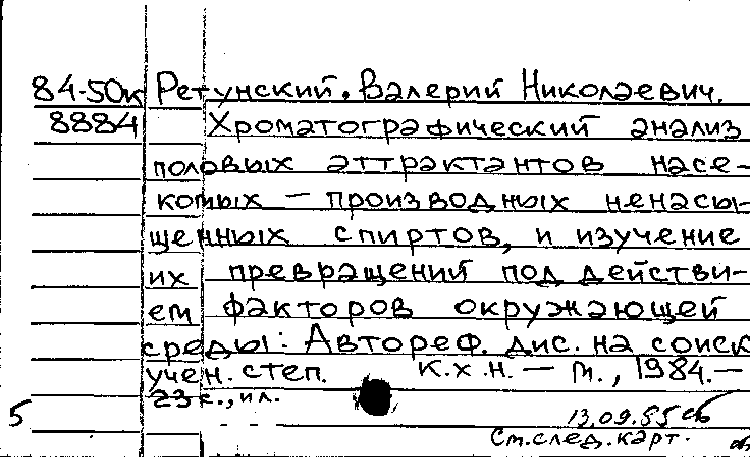 84-50к Ретунский. Валерий Николаевич.
8884 Хроматографический анализ
половых аттрактантов насе-
комых — производных ненасы-
щенных спиртов, и изучение
их превращений под действи-
ем факторов окружающей
среды: Автореф. дис. на соиск
учен. степ. к.х.н. — М., 1984.—
23 с., ил.
5 13.09.85
См. след. карт.